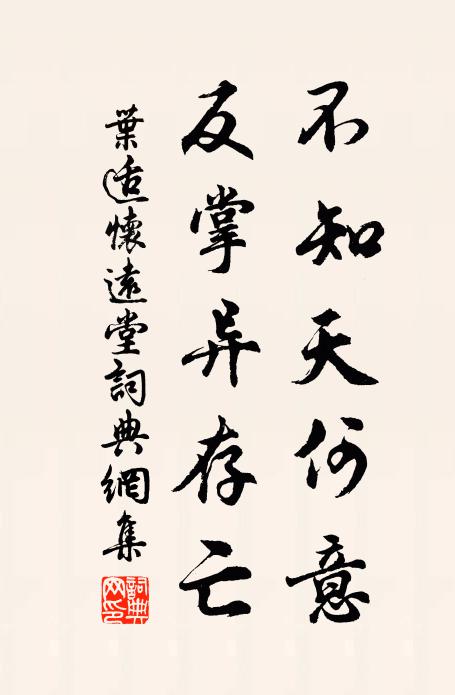 不知天何意
反掌异存亡
葉适懷遠堂詞典網集
詞典网印